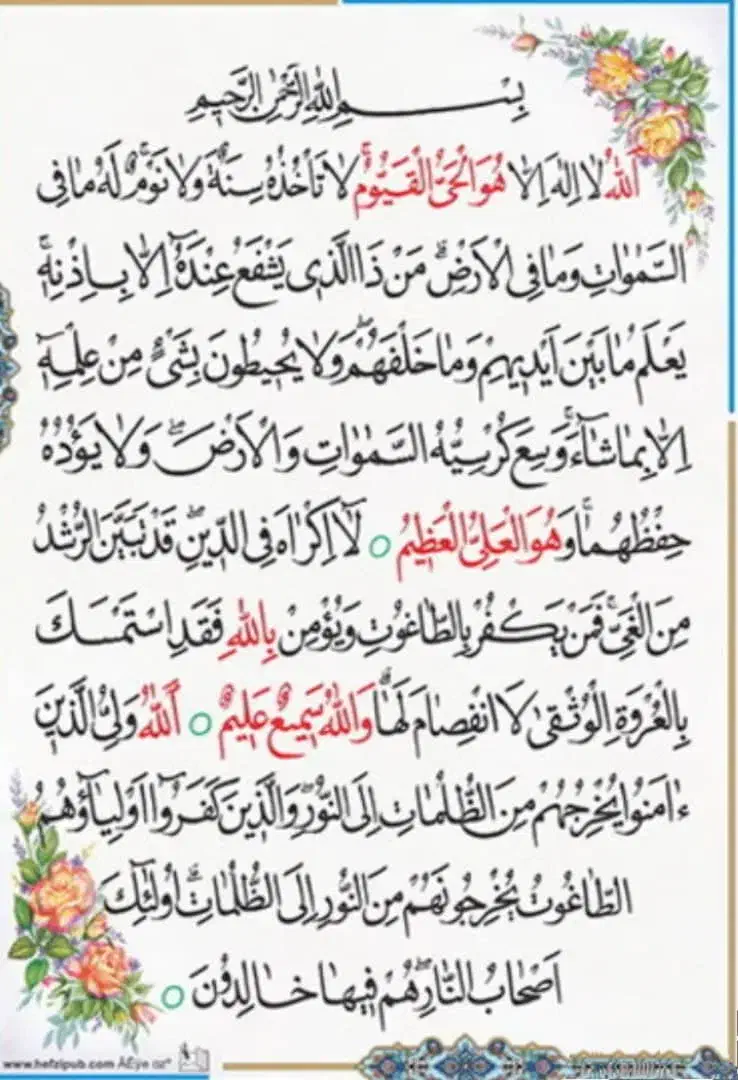 بِسْمِ اللهِ الرَّحْمٰنِ الرَّحِيمِ
اَللهُ لَا اِلٰهَ اِلَّا هُوَ الْحَيُّ الْقَيُّومُ ۚ لَا تَأْخُذُهُ سِنَةٌ وَلَا نَوْمٌ ۚ لَهُ مَا فِي
السَّمٰوَاتِ وَمَا فِي الْاَرْضِ ۗ مَنْ ذَا الَّذِي يَشْفَعُ عِنْدَهُٓ اِلَّا بِاِذْنِهِ ۚ
يَعْلَمُ مَا بَيْنَ اَيْدِيهِمْ وَمَا خَلْفَهُمْ ۖ وَلَا يُحِيطُونَ بِشَيْءٍ مِنْ عِلْمِهِٓ
اِلَّا بِمَا شَآءَ ۚ وَسِعَ كُرْسِيُّهُ السَّمٰوَاتِ وَالْاَرْضَ ۖ وَلَا يَؤُدُهُ
حِفْظُهُمَا ۚ وَهُوَ الْعَلِيُّ الْعَظِيمُ ○ لَآ اِكْرَاهَ فِي الدِّينِ ۖ قَدْ تَبَيَّنَ الرُّشْدُ
مِنَ الْغَيِّ ۚ فَمَنْ يَكْفُرْ بِالطَّاغُوتِ وَيُؤْمِنْ بِاللهِ فَقَدِ اسْتَمْسَكَ
بِالْعُرْوَةِ الْوُثْقىٰ لَا انْفِصَامَ لَهَا ۗ وَاللهُ سَمِيعٌ عَلِيمٌ ○ اَللهُ وَلِيُّ الَّذِينَ
ءَامَنُوا يُخْرِجُهُمْ مِنَ الظُّلُمَاتِ اِلَى النُّورِ ۖ وَالَّذِينَ كَفَرُوٓا اَوْلِيَآؤُهُمُ
الطَّاغُوتُ يُخْرِجُونَهُمْ مِنَ النُّورِ اِلَى الظُّلُمَاتِ ۗ اُولٰٓئِكَ
اَصْحَابُ النَّارِ ۖ هُمْ فِيهَا خَالِدُونَ ○
www.hefzipub.com